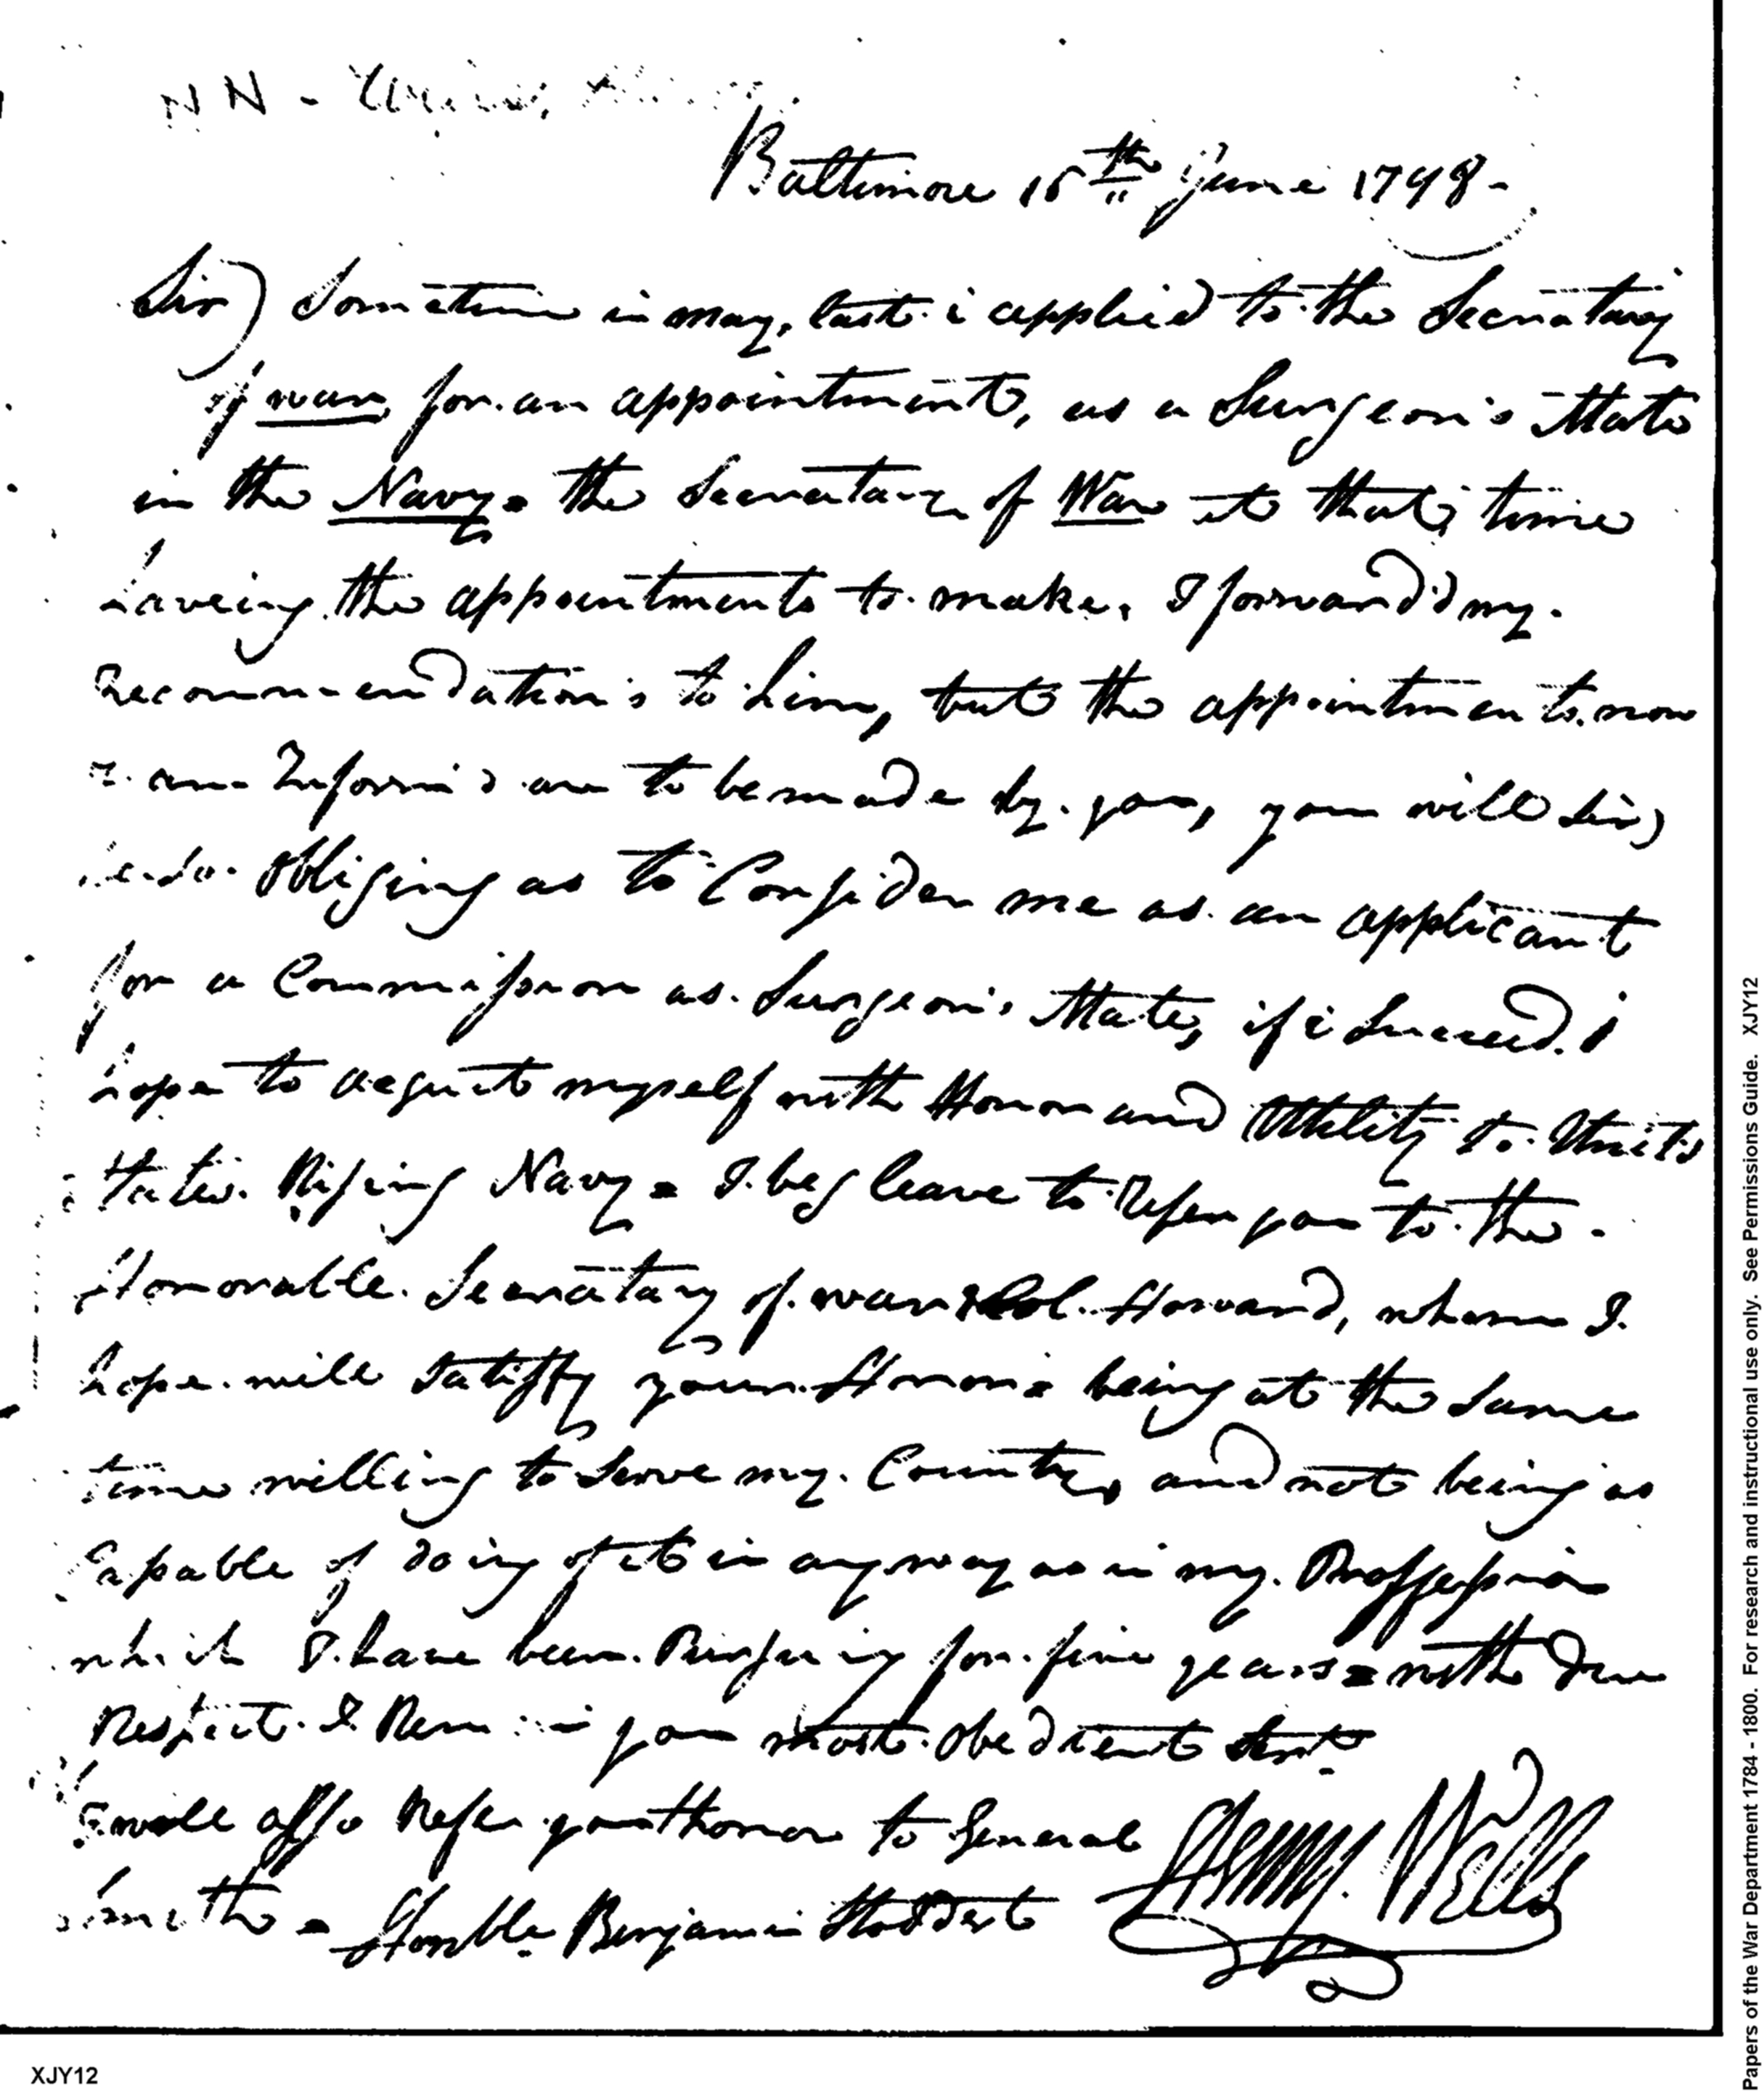 NN -
Baltimore 15th June 1798 -
Sir) Sometime in may, last i applied to the Secretary
of war for an appointment, as a Surgeon's Mate
in the Navy = the Secretary of War at that time
haveing the appointments to make, I forward'd my
recommendation's to him, but the appointments now
I am Inform'd are to be made by you, you will Sir,
be so obliging as to Consider me as an applicant
for a Commission as Surgeon's Mate, if i Succeed I
hope to acquit myself with Honor and Utility to United
States Rising Navy = I beg leave to Refer you to the
Honorable Secretary of war & Col. Howard, whome I
hope will Satisfy your Honor = being at the Same
time willing to Serve my Country and not being as
Capable of doing of it in any way as in my Proffession
which I have been Persuing for five years = with due
Respect I Remain your most obedient Servt
I will also Refer your honor to General
Smith = Honble Benjamin Stoddert
Henry Wells
XJY12
Papers of the War Department 1784 - 1800. For research and instructional use only. See Permissions Guide. XJY12